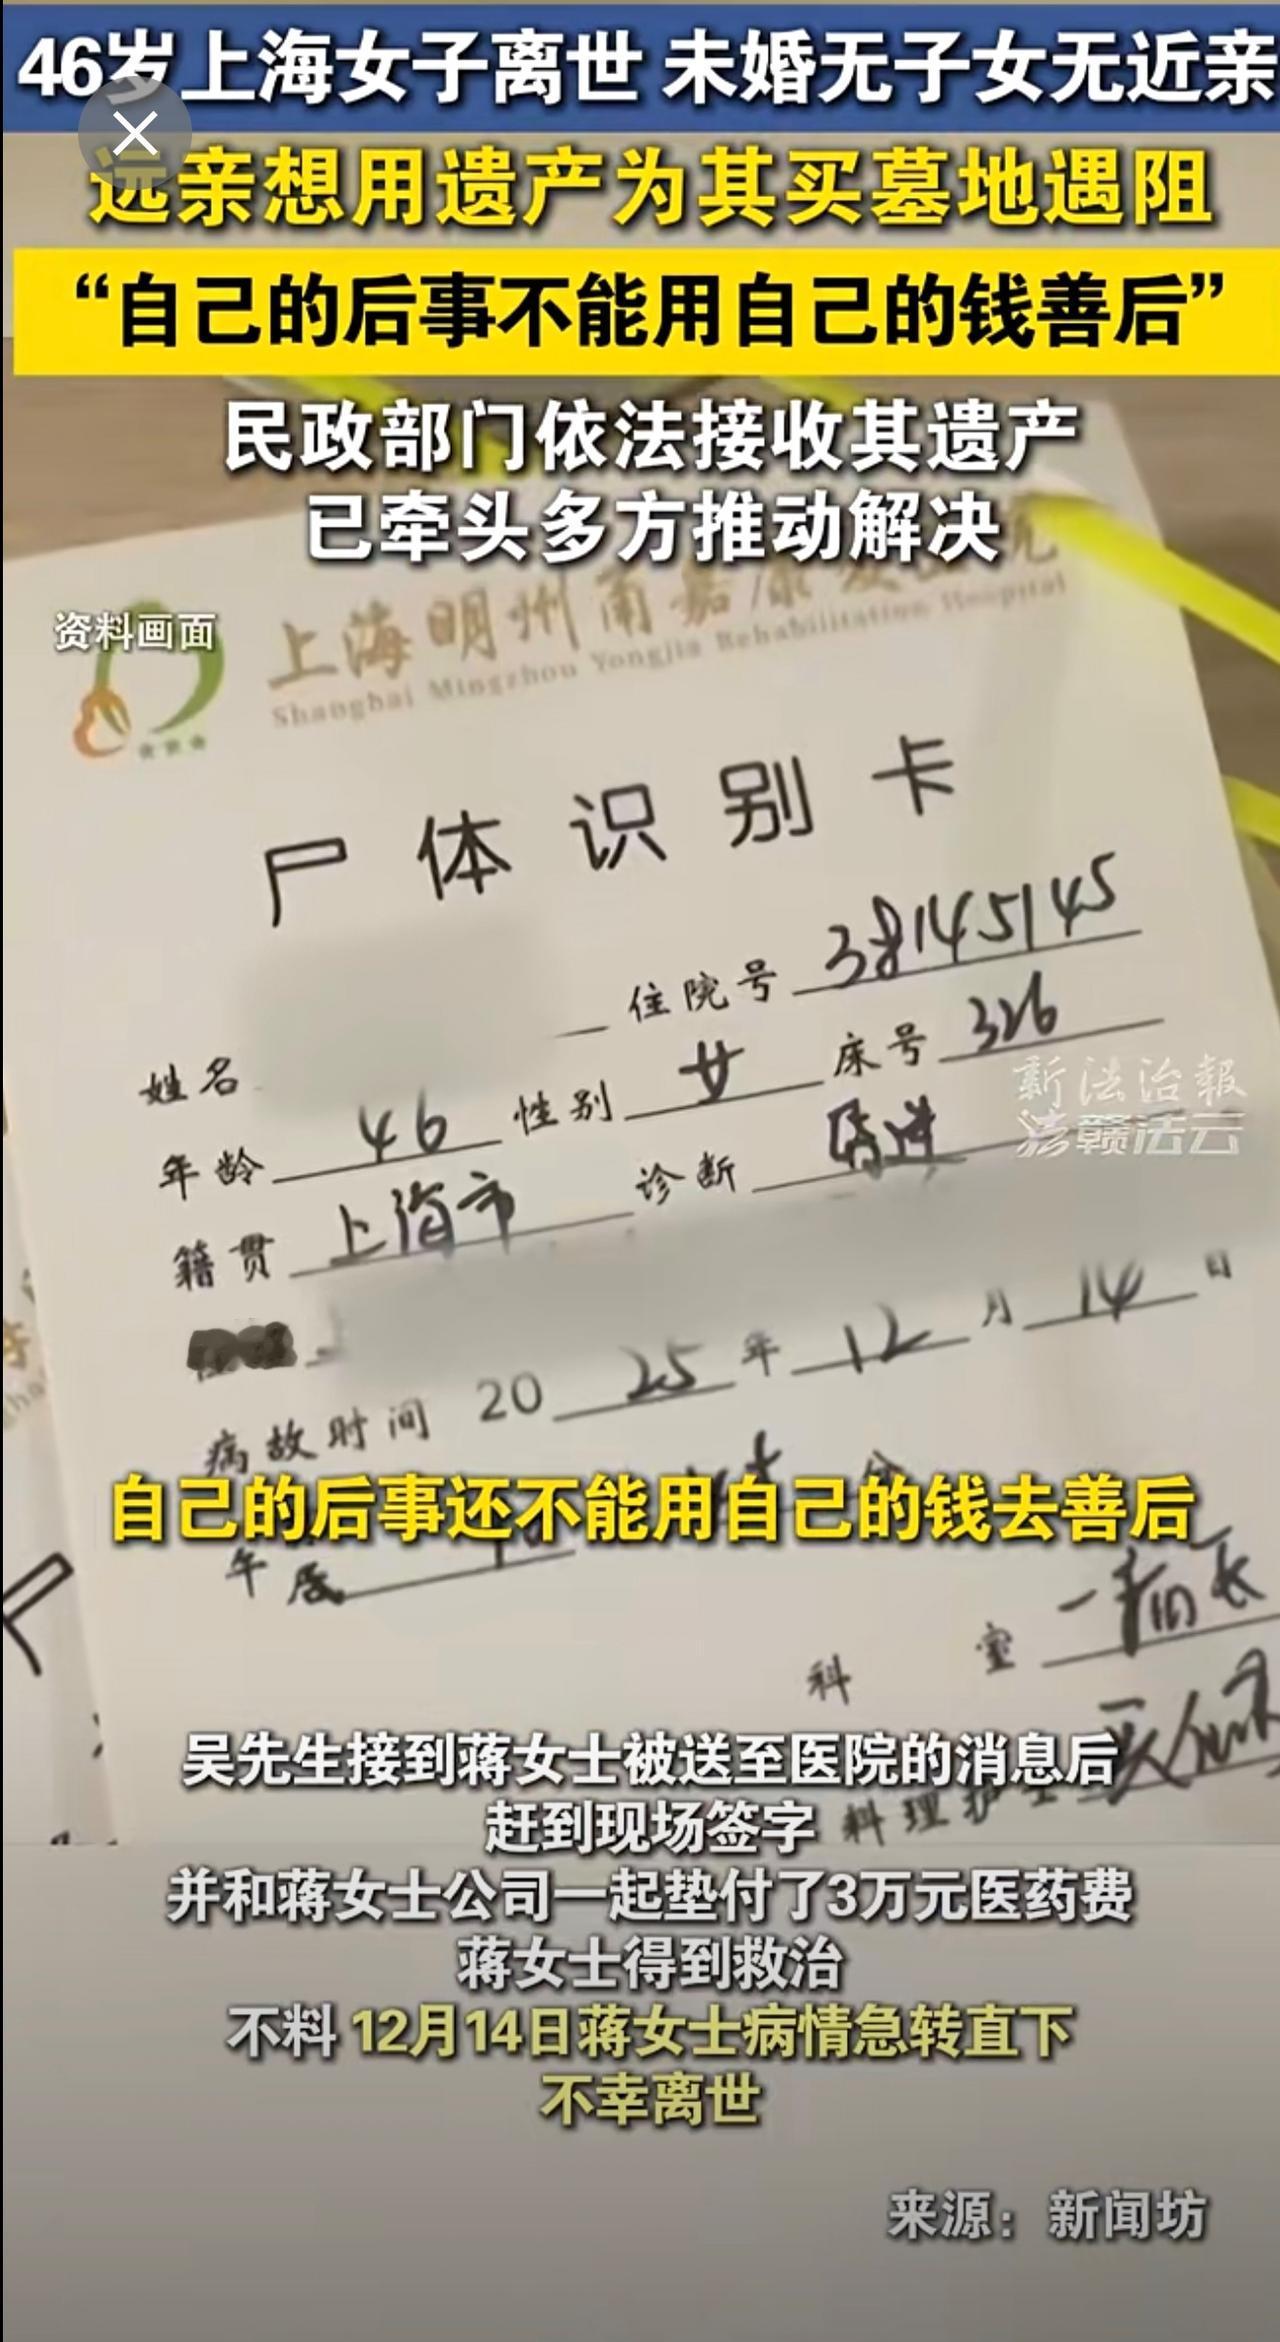 46岁上海女子离世 未婚无子女无近亲
远亲想用遗产为其买墓地遇阻
“自己的后事不能用自己的钱善后”
民政部门依法接收其遗产
已牵头多方推动解决
资料画面
上海明州甬嘉康复医院
Shanghai Mingzhou Yongjia Rehabilitation Hospital
尸体识别卡
姓名 住院号 38145145
年龄 46 性别 女 床号 326
新法治報
赣法云
籍贯 上海市 诊断
病故时间 2025年12月14日
自己的后事还不能用自己的钱去善后
科室
吴先生接到蒋女士被送至医院的消息后
赶到现场签字
料理护士
并和蒋女士公司一起垫付了3万元医药费
蒋女士得到救治
不料 12月14日蒋女士病情急转直下
不幸离世
来源：新闻坊